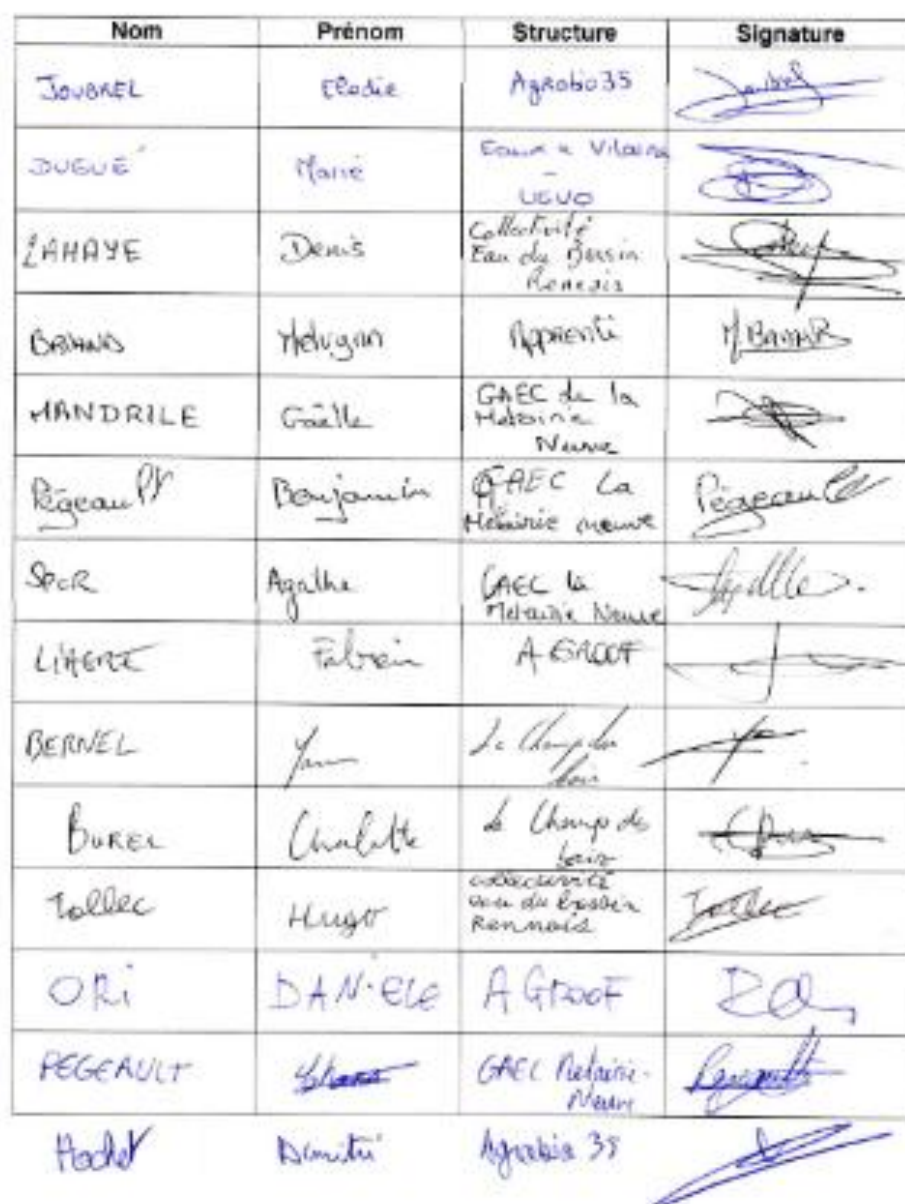 Nom Prénom Structure Signature
JOUBREL Elodie Agrobio35 Joubrel
DUGUÉ Marie Eaux & Vilaine
-
UGVO
LAHAYE Denis Collectivité
Eau du Bassin
Rennais
BRIAND Apprenti
MANDRILE Gaëlle GAEC de la
Métairie
Neuve
Pégeault Benjamin GAEC La
Métairie neuve Pégeault
Agathe GAEC la
Métairie Neuve
Fabien AGROOF
BERNEL Yann Le Champ du
bois
BUREL Charlotte Le Champs du
bois
Tollec Hugo collectivité
eau du bassin
Rennais Tollec
ORi DANiELE AGROOF
PEGEAULT GAEC Métairie-
Neuve Pegeault
Hochet Dimitri Agrobio 35